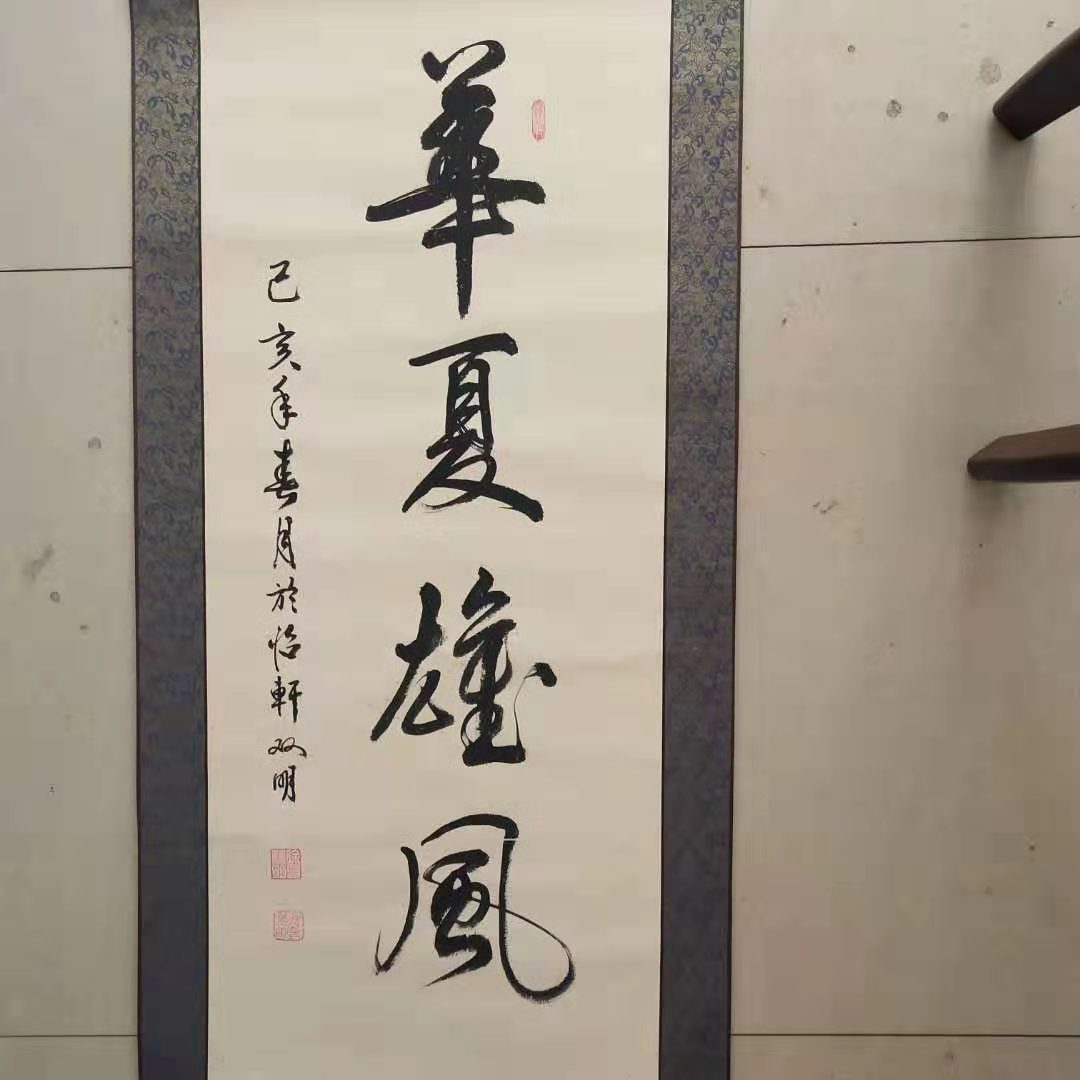 華夏雄風
己亥年春月於怡軒双明